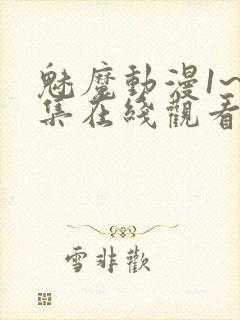 魅魔動漫1~
集在綫觀看
雪非歡